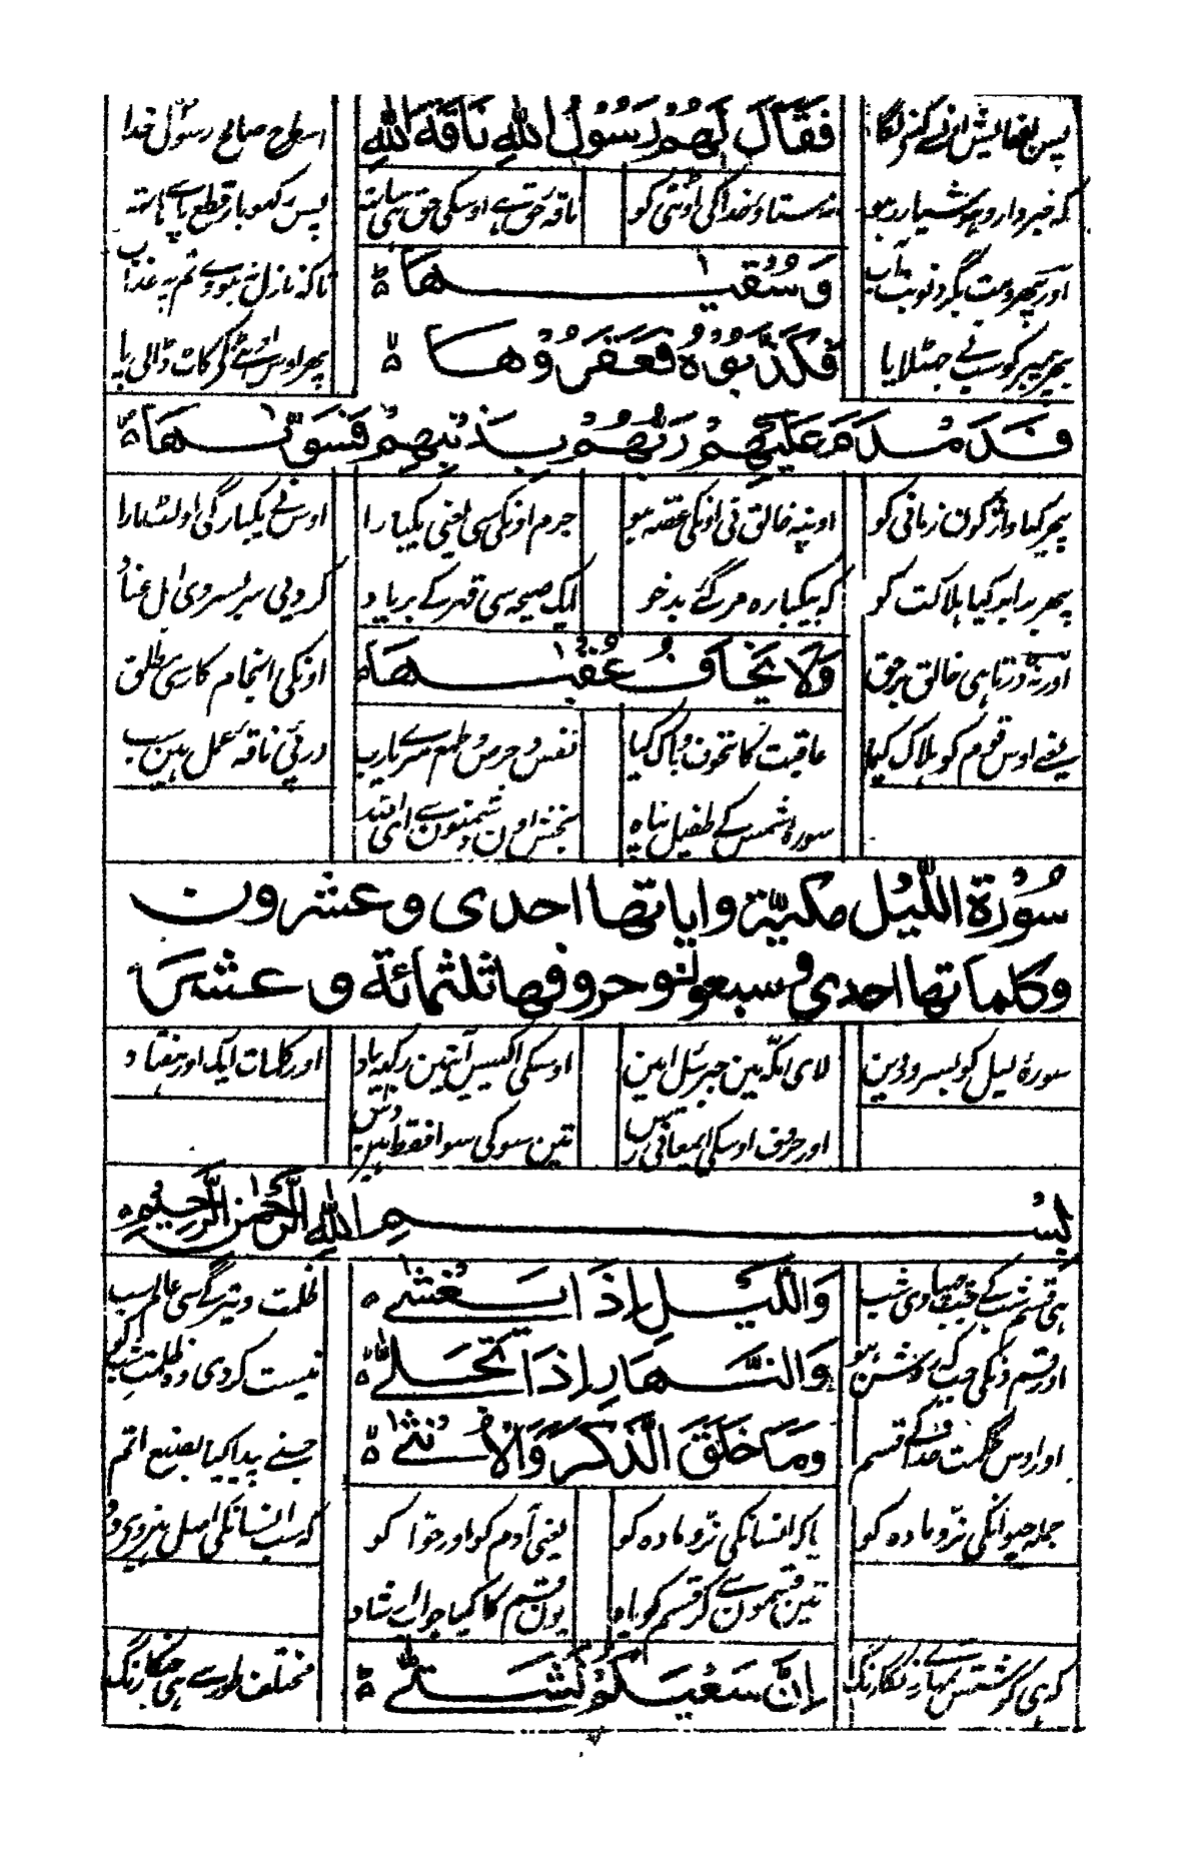 پس بفہایش اونسے کہنے لگا فَقَالَ لَهُمْ رَسُوْلُ اللّٰهِ نَاقَةَ اللّٰهِ اسطرح صالح رسول خدا
کہ خبردار و ہوشیار رہو نہ ستاؤ خدا کی اونٹنی کو ناقۂ حق ہے اوسکی حق پس رکھو باز قطع پا سے ہاتہ
اور پھرو مت بگرد نوبت آب وَسُقْيٰهَا تا کہ نازل نہ ہووے تم پہ عذاب
پھر پیمبر کو سب نے جھٹلایا فَكَذَّبُوْهُ فَعَقَرُوْهَا پھر اوس اونٹنے کے کاٹ ڈالی پا
فَدَمْدَمَ عَلَيْهِمْ رَبُّهُمْ بِذَنْبِهِمْ فَسَوّٰىهَا
پھر کیا واژگون زمانی کو اونپہ خالق نی اونکی غصہ ہو جرم اونکی سی یعنی یکبارا اوس نے یکبارگی اولٹ مارا
پھر برابر کیا ہلاکت کو کہ بیکبارہ مر گئے بدخو ایک صیحہ سی قہر کے برباد کر دیی سربسر وی اہل عناد
اور نہ ڈرتا ہی خالق برحق وَلَا يَخَافُ عُقْبٰهَا اونکی انجام کار سی مطلق
یعنے اوس قوم کو ہلاک کیا عاقبت کا نخوف و باک کیا نفس و حرص و طمع مرے یارب درپئی ناقۂ عمل ہین سب
سورۂ شمس کے طفیل پناہ بخش اون دشمنون سے ای اللہ
سُوْرَةُ اللَّيْلِ مكيّة واياتها احدى وعشرون
وكلماتها احدى وسبعون وحروفها ثلثمائة وعشر
سورۂ لیل کو بسرور دین لای مکہ مین جبرئیل امین اوسکی اکیس آیتین رکھ یاد اور کلمات ایک اور ہفتاد
اور حروف اوسکی تین سو کی سوا فقط ہین دس
بِسْمِ اللّٰهِ الرَّحْمٰنِ الرَّحِيْمِ
ہی قسم شب کے جب چھپاوی شب وَاللَّيْلِ اِذَا يَغْشٰى ظلمت و تیرگے سی عالم سب
اور قسم دنکی جب کہ روشن ہو وَالنَّهَارِ اِذَا تَجَلّٰى نیست کردی وہ ظلمت شب کو
اور اوس حکمت خدا کے قسم وَمَا خَلَقَ الذَّكَرَ وَالْاُنْثٰى جسنے پیدا کیا بصنع اتم
جملہ حیوانکی نر و مادہ کو یا کہ انسانکی نر و مادہ کو یعنی آدم کو اور حوا کو کہ سب انسانکی اصل
تین قسمون سے کر قسم کو یاد یون قسم کا کیا جواب ارشاد
کہ ہی کوشش تمہارے رنگارنگ اِنَّ سَعْيَكُمْ لَشَتّٰى مختلف طور سے ہی